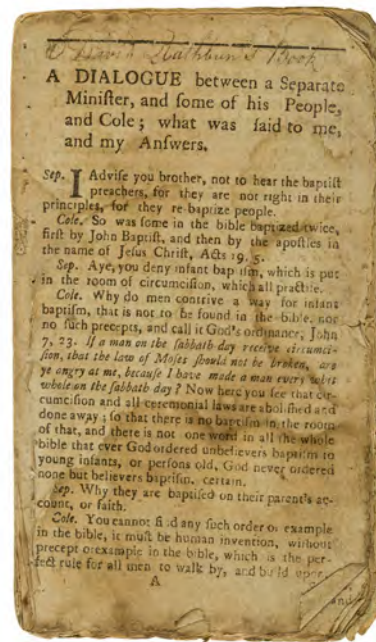 Rathbun's Book
A DIALOGUE between a Separate
Miniſter, and ſome of his People,
and Cole; what was ſaid to me,
and my Anſwers.
Sep. I Adviſe you brother, not to hear the baptiſt
preachers, for they are not right in their
principles, for they re-baptize people.
Cole. So was ſome in the bible baptized twice,
firſt by John Baptiſt, and then by the apoſtles in
the name of Jeſus Chriſt, Acts 19. 5.
Sep. Aye, you deny infant bap iſm, which is put
in the room of circumciſion, which all practiſe.
Cole. Why do men contrive a way for infant
baptiſm, that is not to be found in the bible. nor
no ſuch precepts, and call it God's ordinance, John
7, 23. If a man on the ſabbath day receive circumci-
ſion, that the law of Moſes ſhould not be broken, are
ye angry at me, becauſe I have made a man every whit
whole on the ſabbath day? Now here you ſee that cir-
cumciſion and all ceremonial laws are aboliſhed and
done away; ſo that there is no baptiſm in the room
of that, and there is not one word in all the whole
bible that ever God ordered unbelievers baptiſm to
young infants, or perſons old, God never ordered
none but believers baptiſm, certain.
Sep. Why they are baptiſed on their parent's ac-
count, or faith.
Cole. You cannot fi d any ſuch order or example
in the bible, it muſt be human invention, without
precept or example in the bible, which is the per-
fect rule for all men to walk by, and build upon
A
and